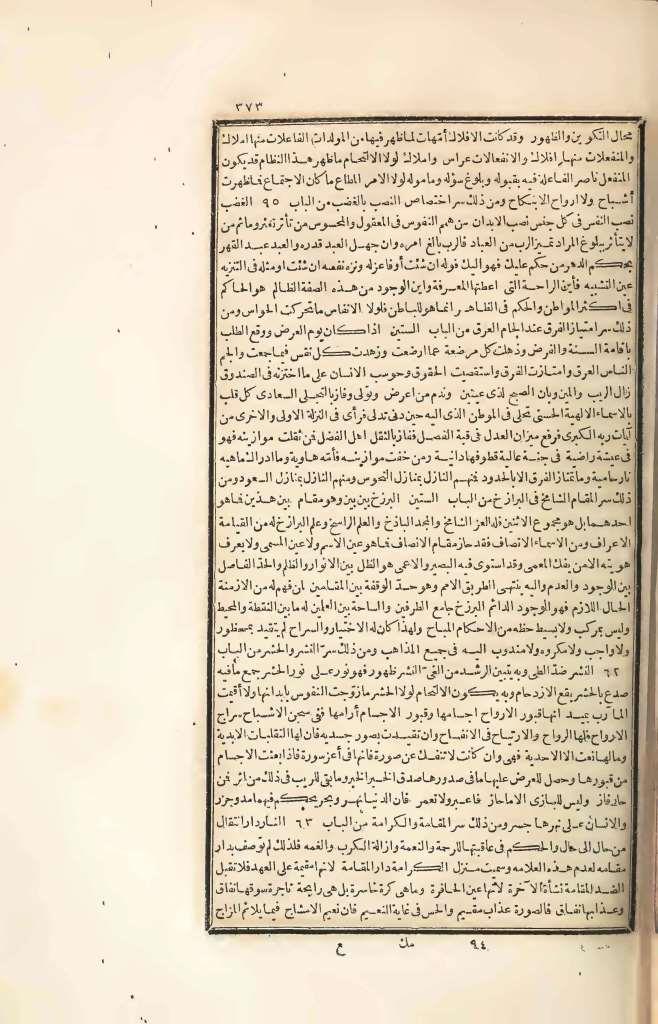 ٣٧٣
محال التكوين والظهور وقد كانت الافلاك أمهات لما ظهر فيها من المولدات الفاعلات منها املاك
والمنفعلات منها افلاك والانفعالات عراس واملاك لولا الالتحام ما ظهر هذا النظام قد يكون
المنفعل ناصر الفاعله فيه بقبوله وبلوغ سؤله ومأموله لولا الامر المطاع ما كان الاجتماع فما ظهرت
أشباح ولا أرواح الا بنكاح ومن ذلك سر اختصاص النصب بالغضب من الباب ٩٥ الغضب
نصب النفس فى كل جنس نصب الابدان من همم النفوس فى المعقول والمحسوس من تأثر تعثر وما ثم من
لا يتأثر ببلوغ المراد تميز الرب من العباد فالرب بالغ امره وان جهل العبد قدره والعبد عبد القهر
يحكم الدهر من حكم عليك فهو اليك فوله ان شئت أو فاعزله ونزه نفسه ان شئت او مثله فى التنزيه
عين التشبيه فأين الراحة التى اعطتها المعرفة واين الوجود من هذه الصفة الظالم هو الحاكم
فى اكثر المواطن والحكم فى الظاهر انما هو للباطن فلولا الانفاس ما تحركت الحواس ومن
ذلك سر امتياز الفرق عند الجام العرق من الباب الستين اذا كان يوم العرض ووقع الطلب
باقامة السنة والفرض وذهلت كل مرضعة عما ارضعت وزهدت كل نفس فيما جمعت والجم
الناس العرق وامتازت الفرق واستقصيت الحقوق وحوسب الانسان على ما اختزنه فى الصندوق
زال الريب والمين وبان الصبح لذى عينين وندم من اعرض وتولى وفاز بالتجلى السعادى كل قلب
بالاسماء الالهية الحسنى تحلى فى الموطن الذى اليه حين دنى تدلى فرأى فى النزلة الاولى والاخرى من
آيات ربه الكبرى فرفع ميزان العدل فى قبة الفصل ففاز بالثقل اهل الفضل فمن ثقلت موازينه فهو
فى عيشة راضية فى جنة عالية قطوفها دانية ومن خفت موازينه فأمه هاوية وما ادراك ماهيه
نار حامية وما تمتاز الفرق الا بالحدود فمنهم النازل بمنازل النحوس ومنهم النازل بمنازل السعود ومن
ذلك سر المقام الشامخ فى البرازخ من الباب الستين البرزخ بين بين وهو مقام بين هذين فما هو
احدهما بل هو مجموع الاثنين فله العز الشامخ والمجد الباذخ والعلم الراسخ وعلم البرازخ له من القيامة
الاعراف ومن الاسماء الاتصاف فقد حاز مقام الانصاف فما هو عين الاسم ولا عين المسمى ولا يعرف
هو ينه الا من يفك المعمى وقد استوى فيه البصير والاعمى هو الظل بين الانوار والظلم والحد الفاصل
بين الوجود والعدم واليه ينتهى الطريق الامم وهو حد الوقفة بين المقامين لمن فهم له من الازمنة
الحال اللازم فهو الوجود الدائم البرزخ جامع الطرفين والساحة بين العلمين له ما بين النقطة والمحيط
وليس بمركب ولا بسيط حظه من الاحكام المباح ولهذا كان له الاختيار والسراح لم يتقيد بمحظور
ولا واجب ولا مكروه ولا مندوب اليه فى جميع المذاهب ومن ذلك سر النشر والحشر من الباب
٦٢ النشر ضد الطى وبه يتبين الرشد من الغى النشر ظهور فهو نور على نور الحشر جمع ما فيه
صدع بالحشر يقع الازدحام وبه يكون الالتحام لولا الحشر ما زوجت النفوس بابدانها ولا أقيمت
المآرب بميد انها قبور الارواح اجسامها وقبور الاجسام أرامها ففى سجن الاشباح سراج
الارواح فلها الرواح والارتياح فى الانفساح وان تقيدت بصور جسديه فان لها التقلبات الابدية
ومالها نعت الا الاحدية فهى وان كانت لا تنفك عن صورة فانها فى أعز سورة فاذا بعثت الاجسام
من قبورها وحصل للعرض عليها ما فى صدورها صدق الخبر الخبر وما بقى للريب فى ذلك من اثر فمن
جاز فاز وليس للبازى الا ما حاز فاعبر ولا تعمر فان الدنيا نهر وبحر يحكم فيهما مد وجزر
والانسان على نهرها جسر ومن ذلك سر المقامة والكرامة من الباب ٦٣ النار دار انتقال
من حال الى حال والحكم فى عاقبتها للرحمة والنعمة وازالة الكرب والغمه فلذلك لم توصف بدار
مقامه لعدم هذه العلامه وسميت منزل الكرامة دار المقامة لانها مقيمة على العهد فلا تقبل
الضد المقامة نشأة الآخرة لانها عين الحافرة وما هى كرة خاسرة بل هى رابحة تاجرة سوقها نفاق
وعذابها نفاق فالصورة عذاب مقيم والحس فى غاية النعيم فان نعيم الامشاج فيما يلائم المزاج
٩٤ مك ع